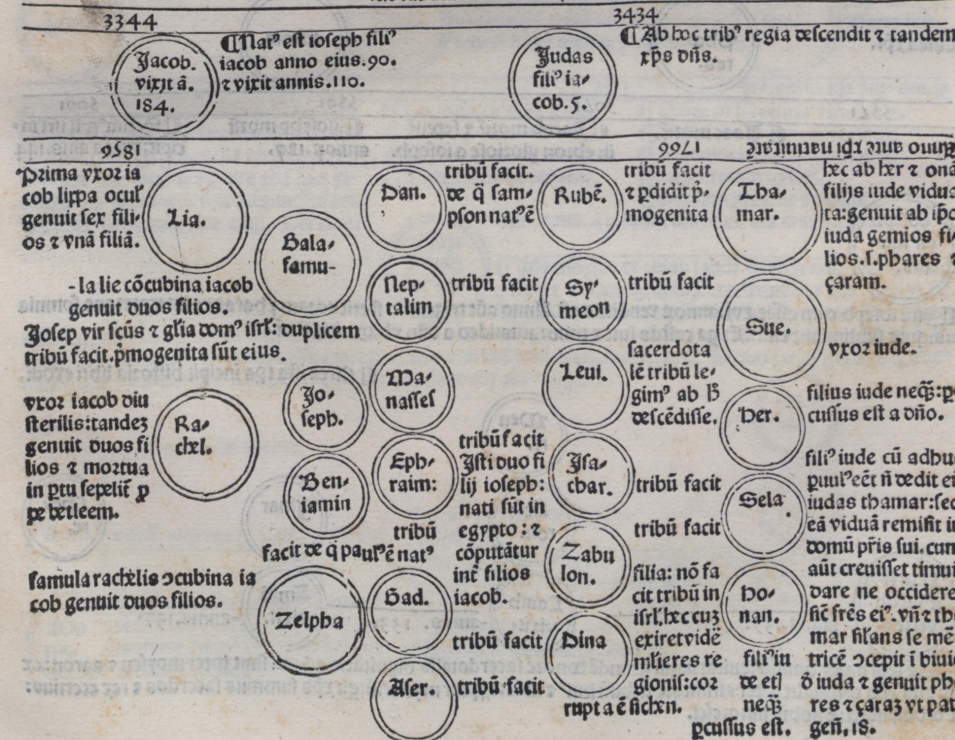 3344
Jacob.
vixit ā.
184.
¶Natꝰ est ioseph filiꝰ
iacob anno eius.90.
⁊ vixit annis.110.
3434
Judas
filiꝰ ia⸗
cob.5.
¶Ab hoc tribꝰ regia descendit ⁊ tandem
xp̄s dn̄s.
1856
1766
Anno ante xp̄i natiuitatē
Prima vxor ia
cob lippa oculꝭ
genuit sex fili⸗
os ⁊ vnā filiā.
Lia.
Bala⸗
famu-
-la lie cōcubina iacob
genuit duos filios.
Josep vir scūs ⁊ gl̄ia domꝰ isrl̄: duplicem
tribū facit.p̄mogenita sūt eius.
vxor iacob diu
sterilis:tandez
genuit duos fi
lios ⁊ mortua
in ptu sepelit᷑ ꝓ
pe betleem.
Ra⸗
chel.
Jo⸗
seph.
Ben⸗
iamin
tribū
facit de q̄ paulꝰē natꝰ
famula rachelis ↄcubina ia
cob genuit duos filios.
Zelpha
Dan.
tribū facit.
de q̄ sam⸗
pson natꝰē
Nep⸗
talim
tribū facit
Ma⸗
nasses
Eph⸗
raim:
tribū facit
Isti duo fi
lij ioseph:
nati sūt in
egypto:⁊
cōputātur
int̄ filios
iacob.
Gad.
tribū facit
Aser.
tribū facit
Rubē.
tribū facit
⁊ pdidit p̄⸗
mogenita
Sy⸗
meon
tribū facit
Leui.
sacerdota
lē tribū le⸗
gimꝰ ab h̄
descēdisse.
Isa⸗
char.
tribū facit
Zabu
lon.
tribū facit
Dina
filia: nō fa
cit tribū in
isrl̄.hec cuz
exiret vidē
mlieres re
gionis:cor
rupta ē sichen.
Tha⸗
mar.
hec ab her ⁊ onā
filijs iude vidua
ta:genuit ab ip̄o
iuda gemios fi⸗
lios.s.phares ⁊
çaram.
Sue.
vxor iude.
Her.
filius iude neqꝫ:p
cussus est a dn̄o.
Sela
filiꝰ iude cū adhu
puulꝰ eēt n̄ dedit ei
iudas thamar:sed
eā viduā remisit in
domū pr̄is sui.cum
aūt creuisset timui
dare ne occidere
sic̄ fr̄es eiꝰ. vn̄ ⁊ th
mar filans se mē
tricē ↄcepit ī biuio
d̄ iuda ⁊ genuit pha
res ⁊ çaraꝫ vt pat
gen̄.18.
Ho⸗
nan.
filiꝰ iu
de et ł
neqꝫ
pcussus est.